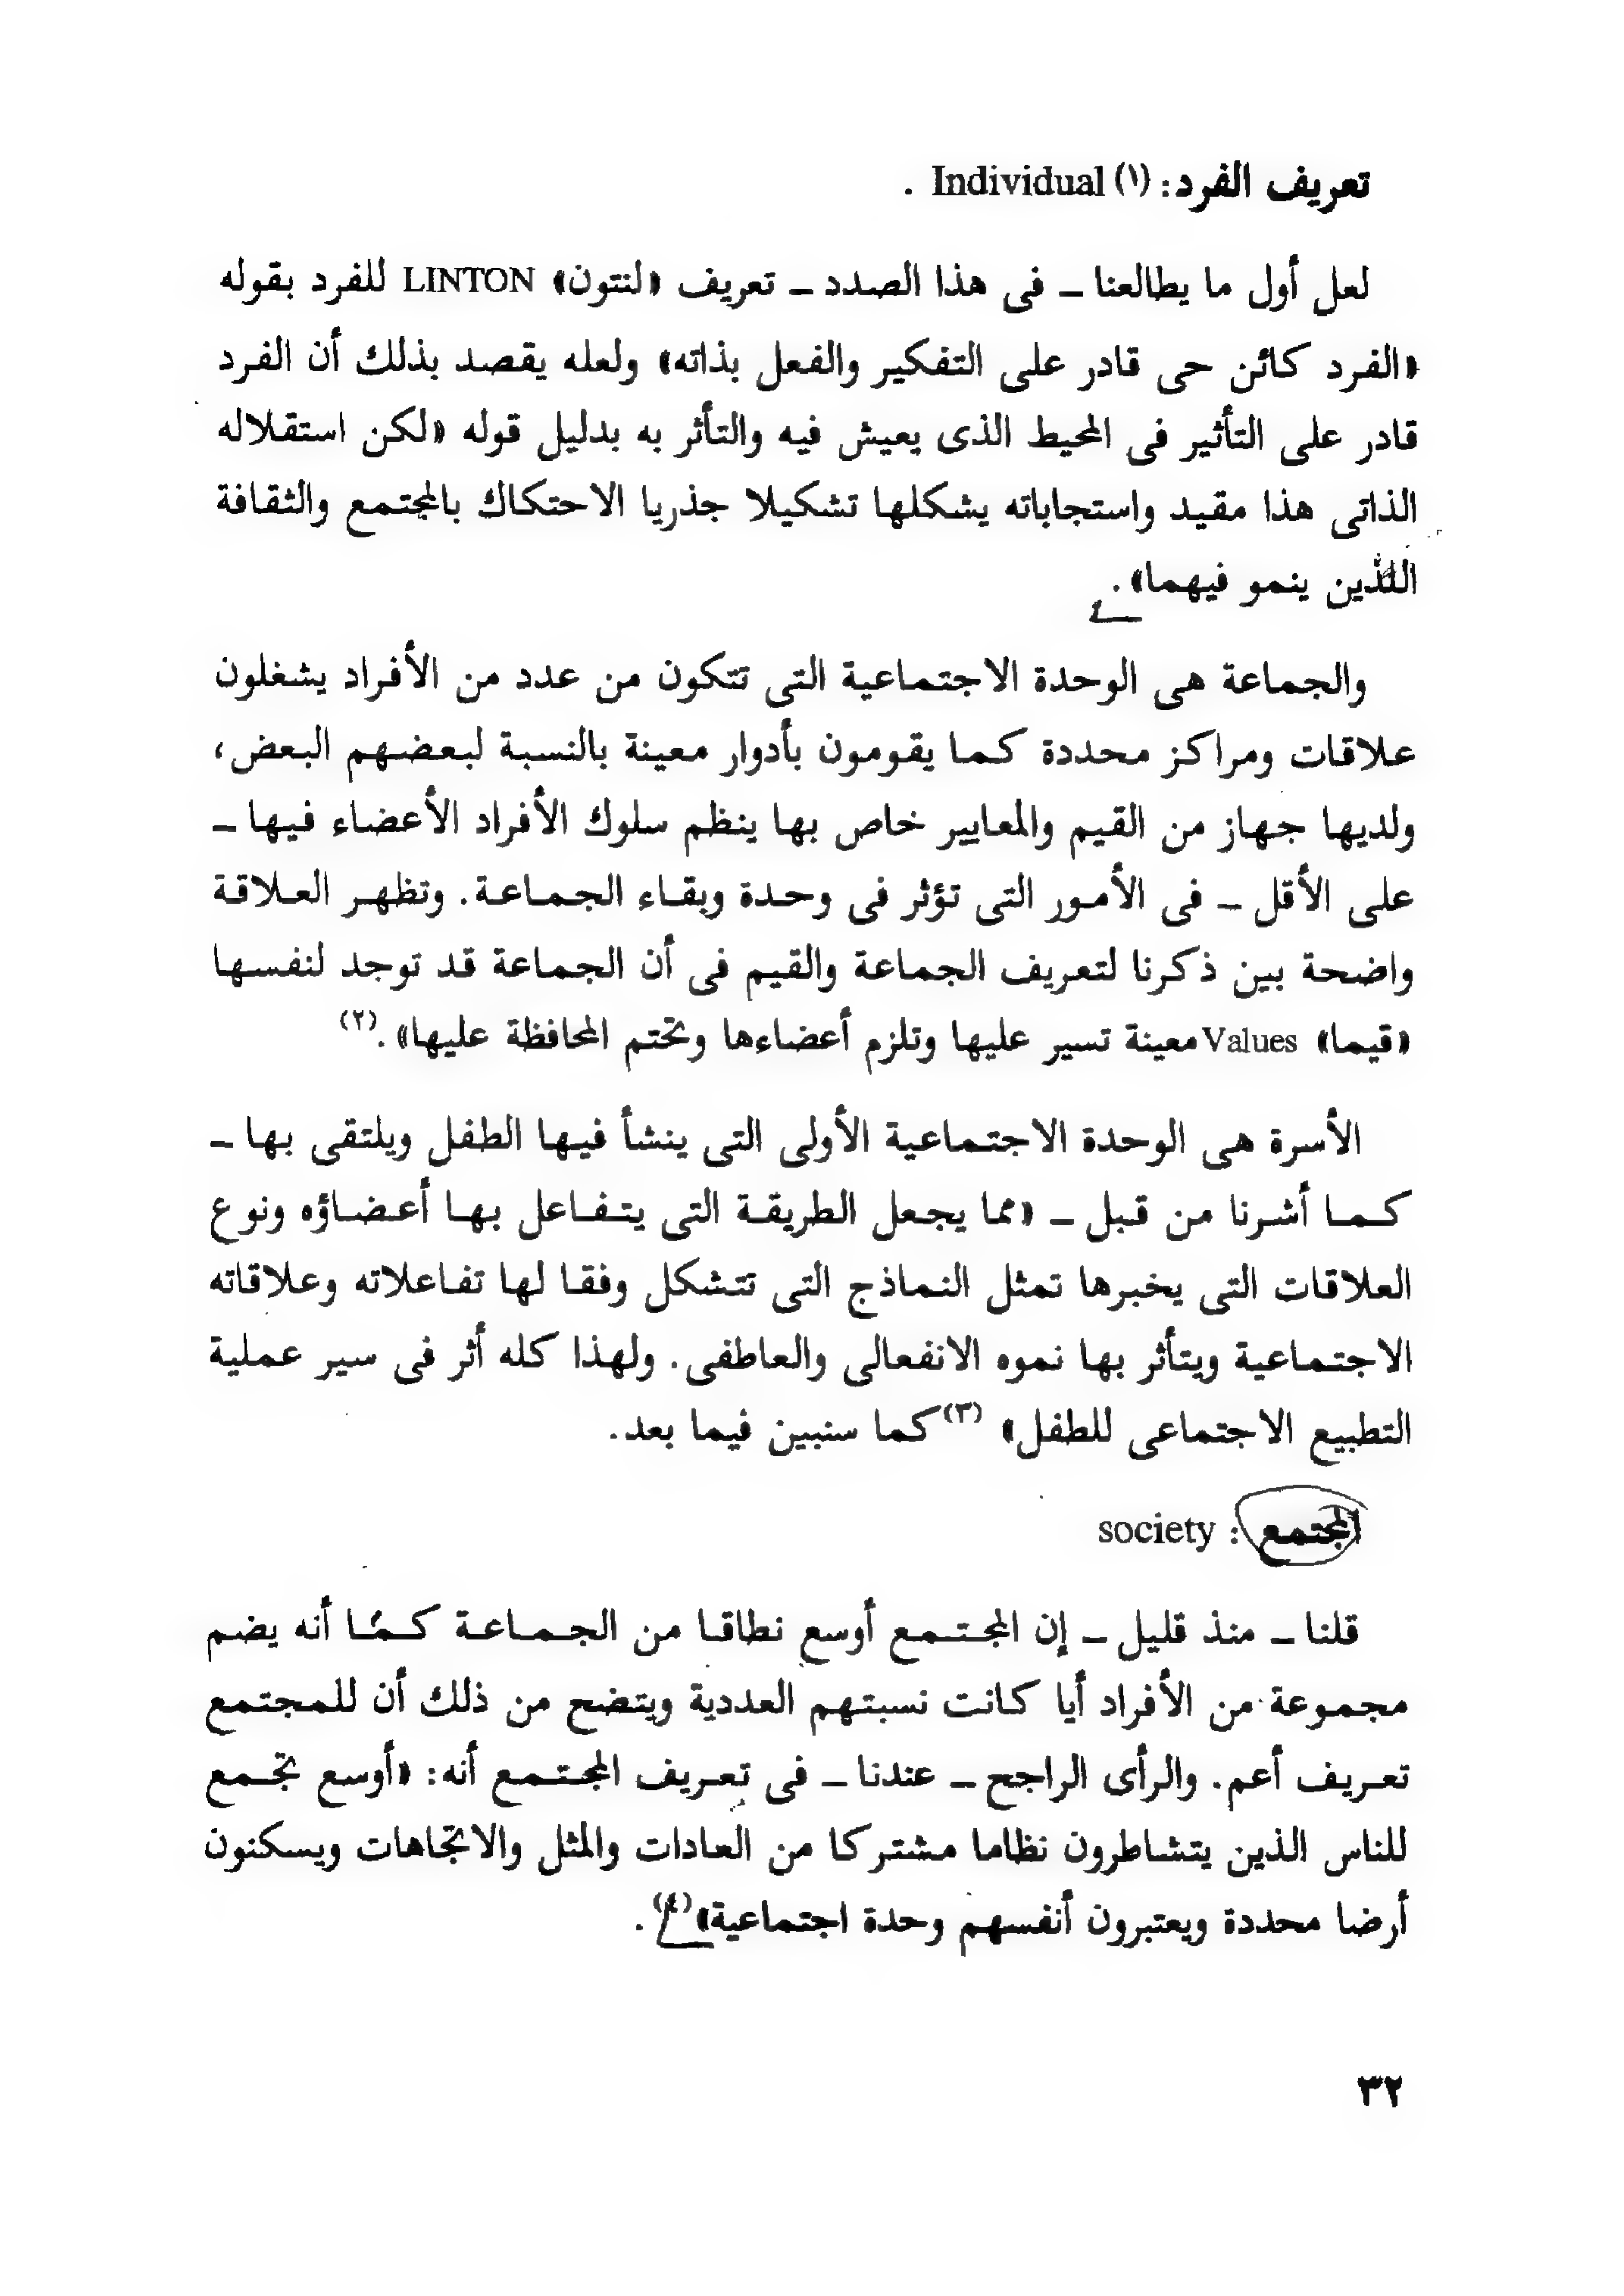 تعريف الفرد: (١) Individual .
لعل أول ما يطالعنا ـ فى هذا الصدد ـ تعريف «لنتون» LINTON للفرد بقوله
«الفرد كائن حى قادر على التفكير والفعل بذاته» ولعله يقصد بذلك أن الفرد
قادر على التأثير فى المحيط الذى يعيش فيه والتأثر به بدليل قوله «لكن استقلاله
الذاتى هذا مقيد واستجاباته يشكلها تشكيلا جذريا الاحتكاك بالمجتمع والثقافة
اللذين ينمو فيهما» .
والجماعة هى الوحدة الاجتماعية التى تتكون من عدد من الأفراد يشغلون
علاقات ومراكز محددة كما يقومون بأدوار معينة بالنسبة لبعضهم البعض،
ولديها جهاز من القيم والمعايير خاص بها ينظم سلوك الأفراد الأعضاء فيها ـ
على الأقل ـ فى الأمور التى تؤثر فى وحدة وبقاء الجماعة. وتظهر العلاقة
واضحة بين ذكرنا لتعريف الجماعة والقيم فى أن الجماعة قد توجد لنفسها
«قيما» Values معينة تسير عليها وتلزم أعضاءها وتختم المحافظة عليها» .(٢)
الأسرة هى الوحدة الاجتماعية الأولى التى ينشأ فيها الطفل ويلتقى بها ـ
كما أشرنا من قبل ـ «مما يجعل الطريقة التى يتفاعل بها أعضاؤه ونوع
العلاقات التى يخبرها تمثل النماذج التى تتشكل وفقا لها تفاعلاته وعلاقاته
الاجتماعية ويتأثر بها نموه الانفعالى والعاطفى. ولهذا كله أثر فى سير عملية
التطبيع الاجتماعى للطفل» (٣) كما سنبين فيما بعد.
المجتمع : society
قلنا ـ منذ قليل ـ إن المجتمع أوسع نطاقا من الجماعة كما أنه يضم
مجموعة من الأفراد أيا كانت نسبتهم العددية ويتضح من ذلك أن للمجتمع
تعريف أعم. والرأى الراجح ـ عندنا ـ فى تعريف المجتمع أنه: «أوسع تجمع
للناس الذين يتشاطرون نظاما مشتركا من العادات والمثل والاتجاهات ويسكنون
أرضا محددة ويعتبرون أنفسهم وحدة اجتماعية» (٤) .
٣٢